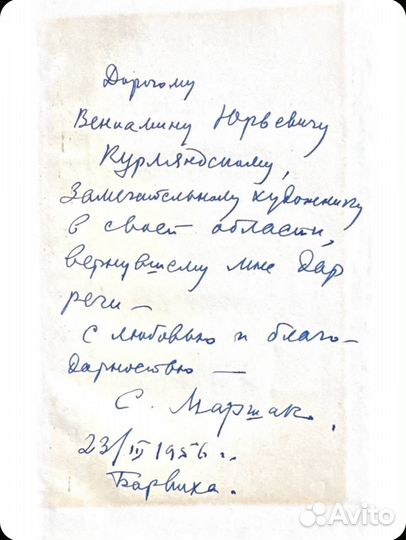 Дорогому
Вениамину Юрьевичу
Курляндскому,
Замечательному художнику
в своей области,
вернувшему мне дар
речи —
С любовью и благо-
дарностью —
С. Маршак.
23/III 1956 г.
Барвиха.
Avito